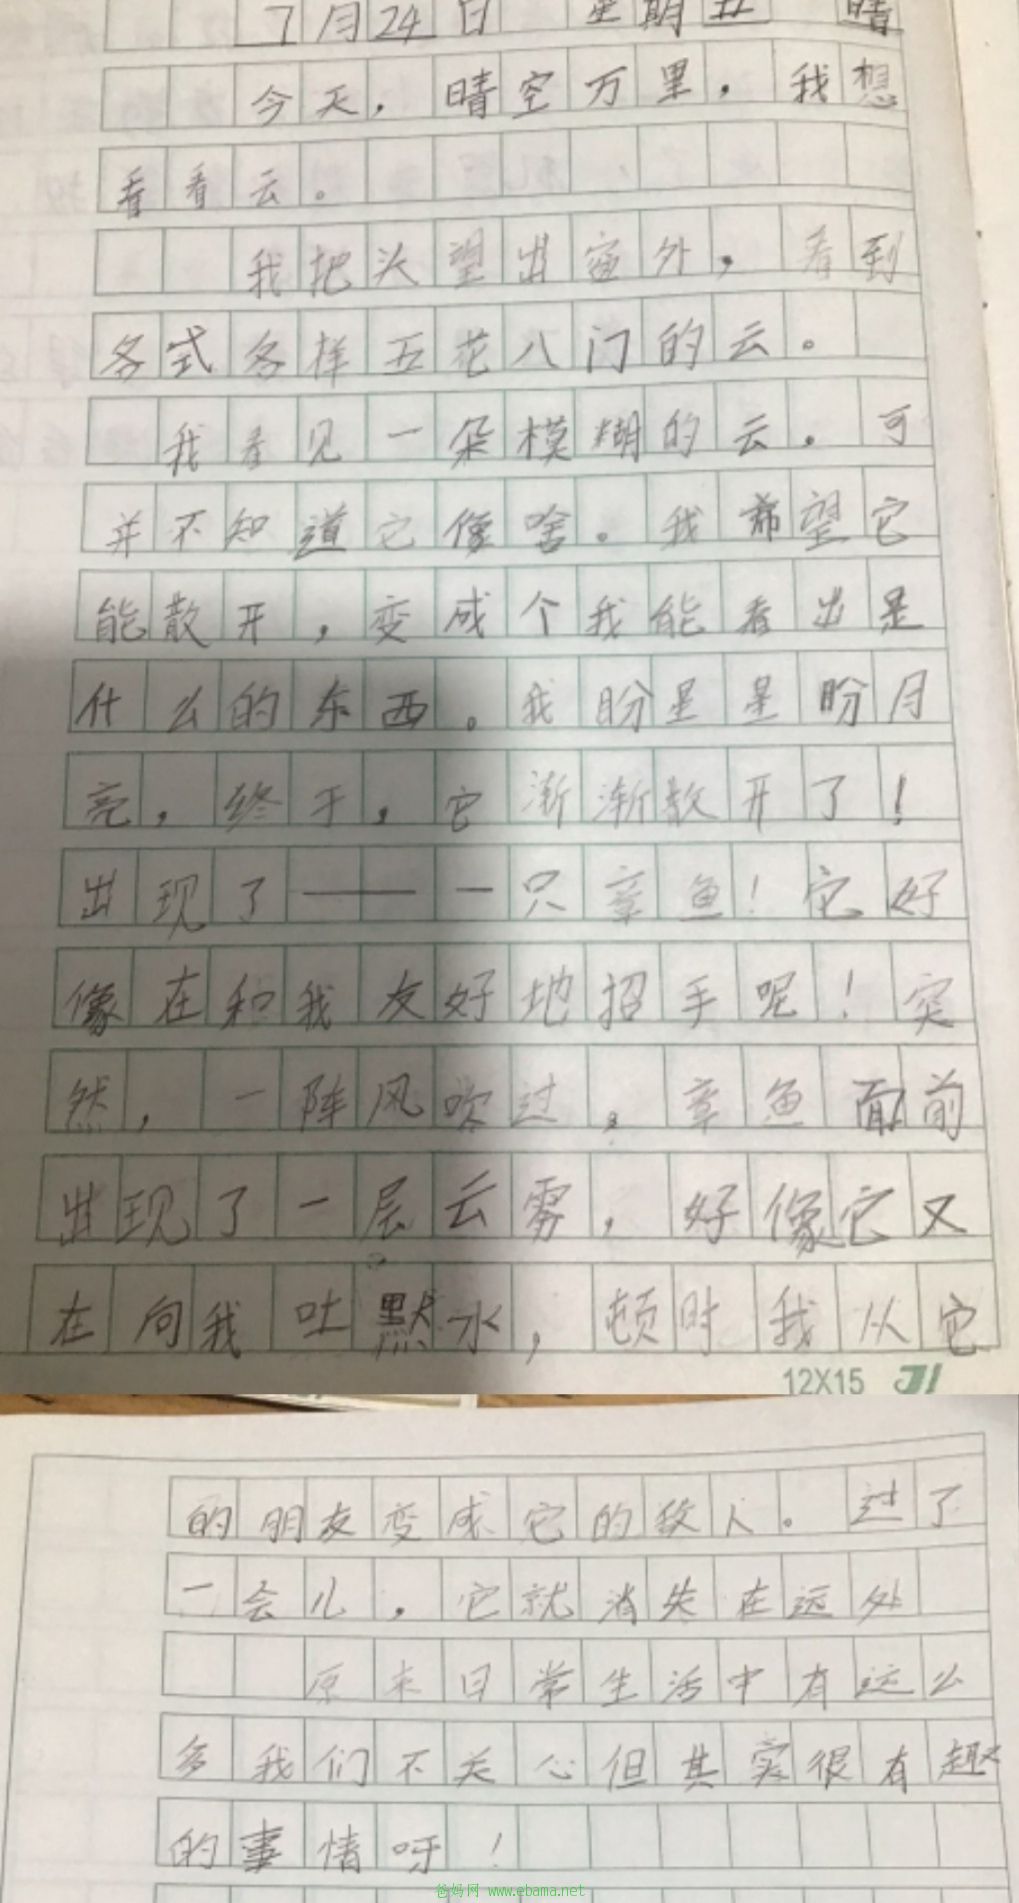 7月24日 星期五 晴
今天，晴空万里，我想
看看云。
我把头望出窗外，看到
各式各样五花八门的云。
我看见一朵模糊的云。可
并不知道它像啥。我希望它
能散开，变成个我能看出是
什么的东西。我盼星星盼月
亮，终于，它渐渐散开了！
出现了——一只章鱼！它好
像在和我友好地招手呢！突
然，一阵风吹过，章鱼面前
出现了一层云雾，好像它又
在向我吐默水，顿时我从它
12X15
的朋友变成它的敌人。过了
一会儿，它就消失在远处
原来日常生活中有这么
多我们不关心但其实很有趣
的事情呀！
爸妈网 www.ebama.net